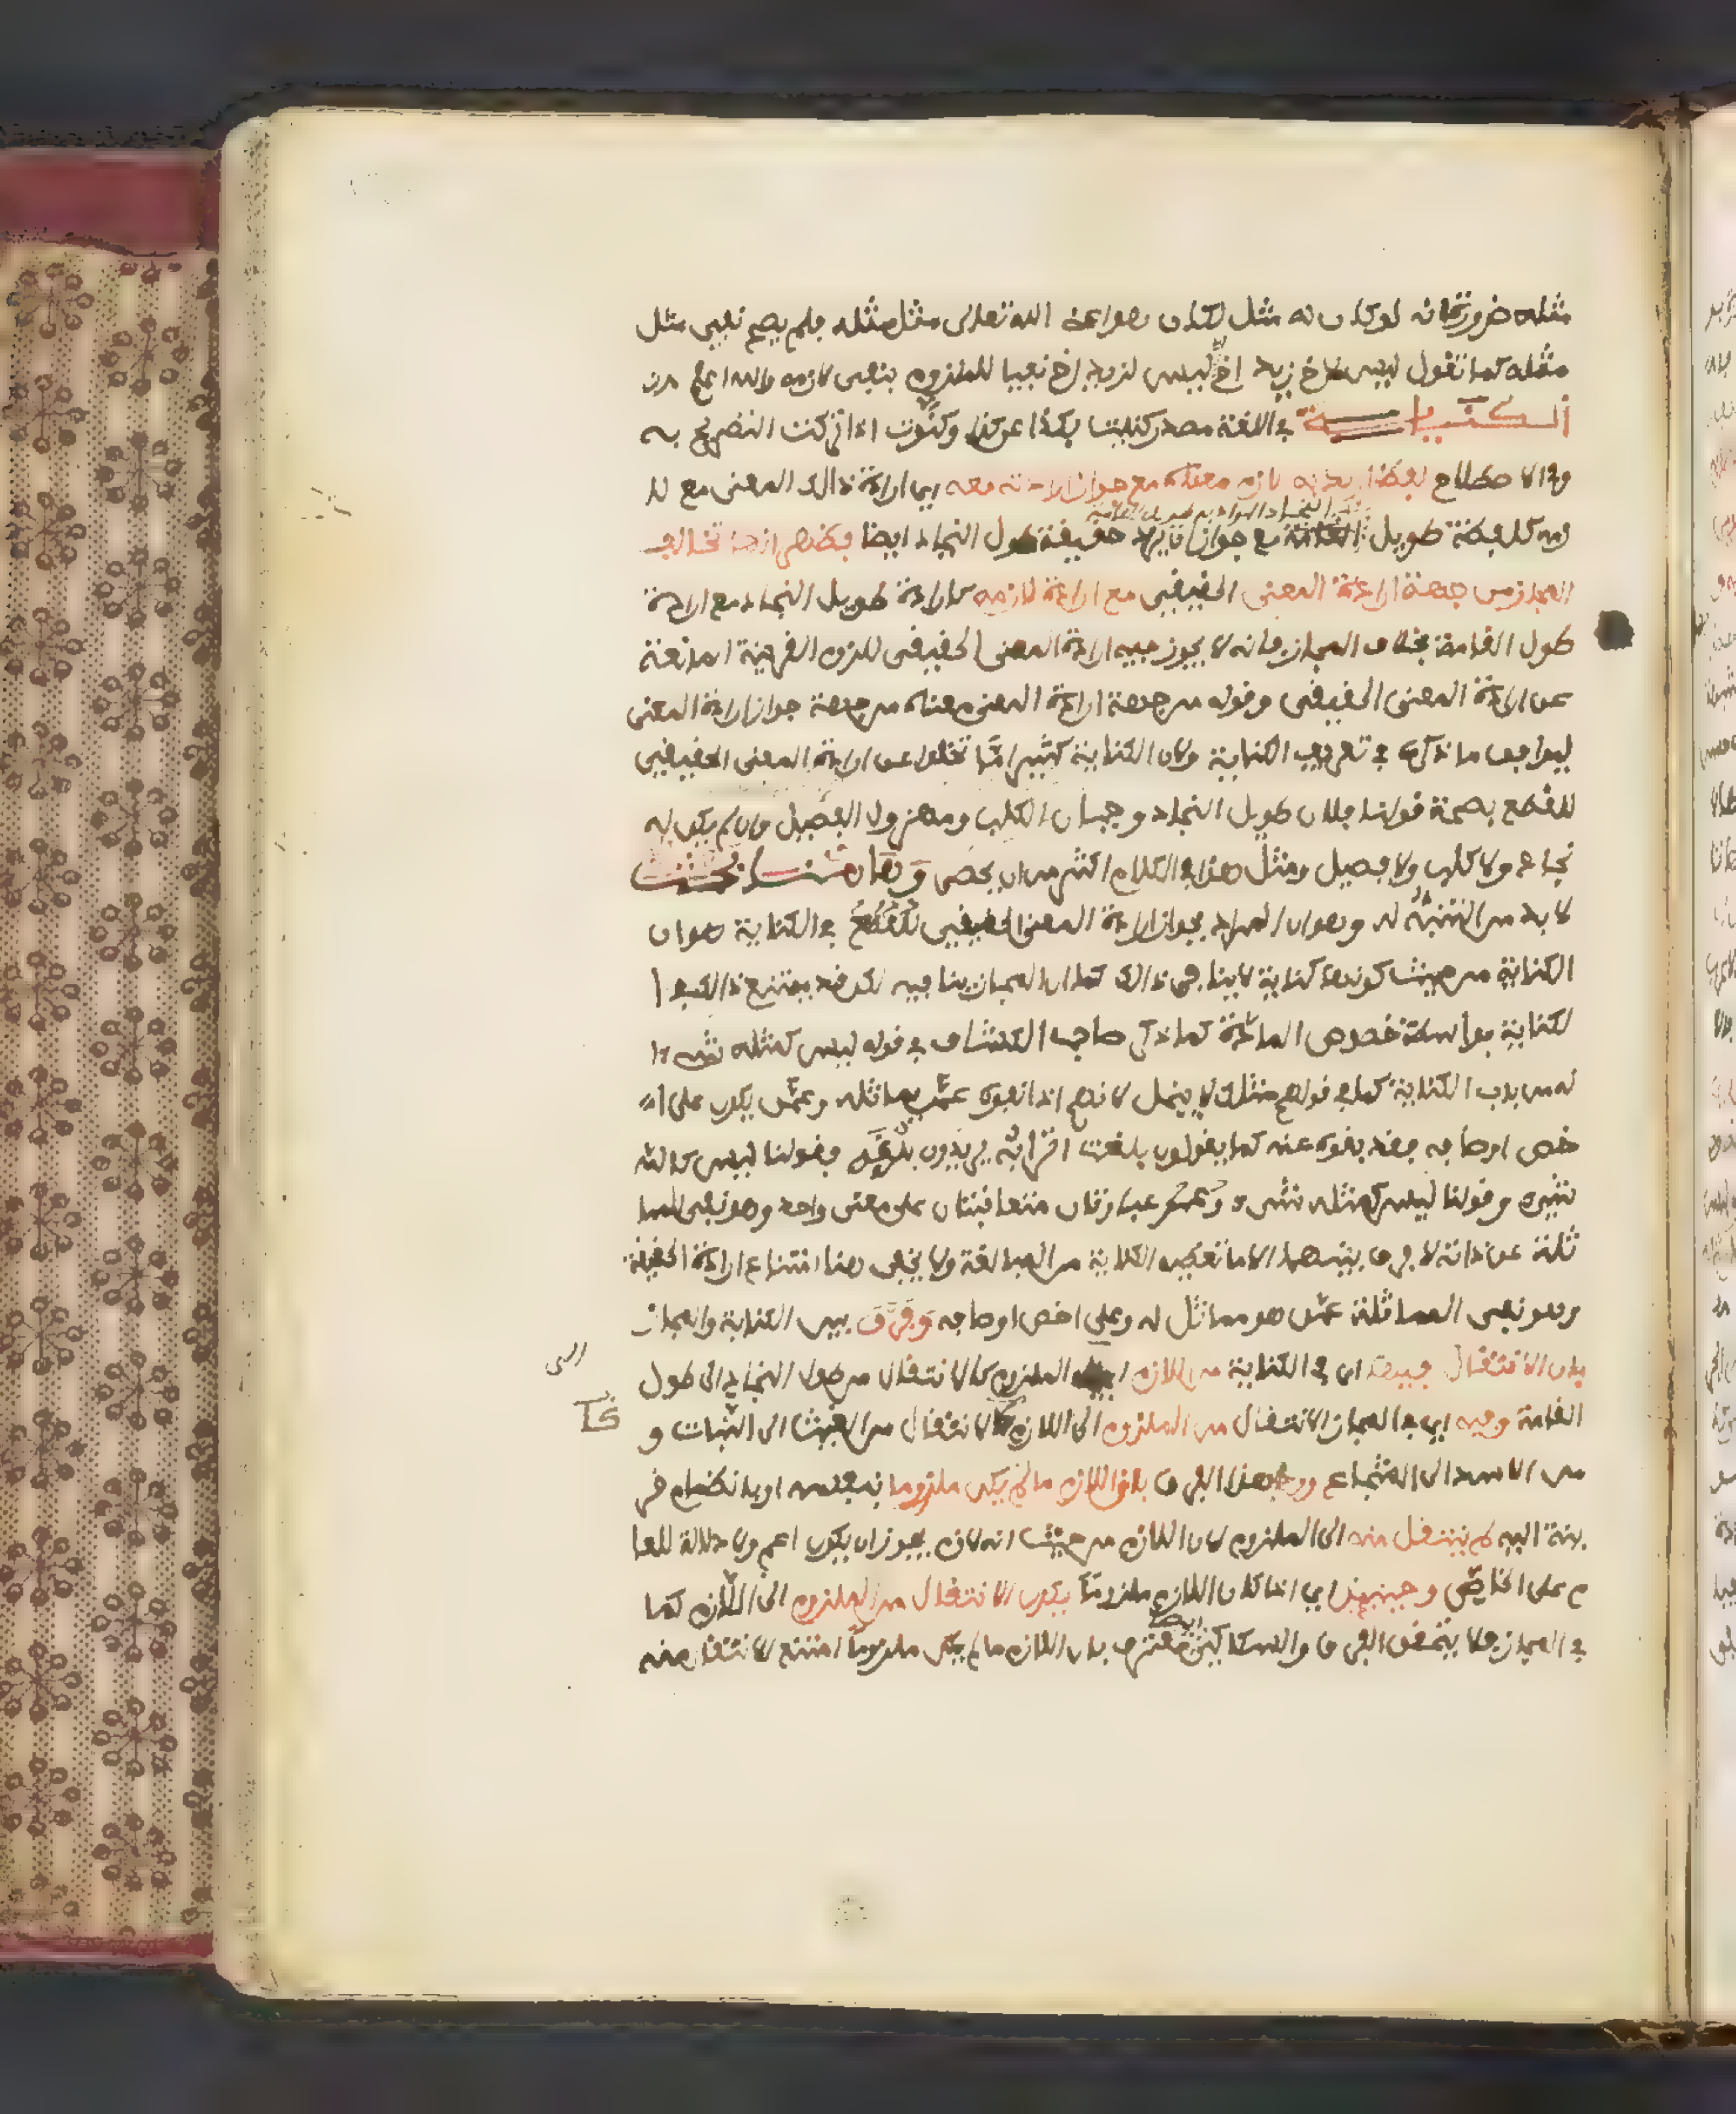 مثله ضرورة انه لو كان له مثل لكان هو اعنى الله تعالى مثل مثله فلم يصح نفي مثل
مثله كما تقول ليس لاخ زيد اخ اي ليس لزيد اخ نفيا للملزوم بنفي لازمه والله اعلم
الكناية في اللغة مصدر كنيت بكذا عن كذا وكنوت اذا تركت التصريح به
وفي الاصطلاح لفظ اريد به لازم معناه مع جواز ارادته معه اي ارادة ذالك المعنى مع لا
زمه كلفظة طويل النجاد المراد به طويل القامة مع جواز ان يراد حقيقة طول النجاد ايضا فظهر انها تخالف
المجاز من جهة ارادة المعنى الحقيقي مع ارادة لازمه كارادة طويل النجاد مع ارادة
طول القامة بخلاف المجاز فانه لا يجوز فيه ارادة المعنى الحقيقي للزوم القرينة المانعة
عن ارادة المعنى الحقيقي وقوله من جهة ارادة المعنى معناه من جهة جواز ارادة المعنى
ليوافق ما ذكره في تعريف الكناية ولان الكناية كثيرا ما تخلوا عن ارادة المعنى الحقيقي
للقطع بصحة قولنا فلان طويل النجاد وجبان الكلب ومهزول الفصيل وان لم يكن له
نجاد ولا كلب ولا فصيل ومثل هذا في الكلام اكثر من ان يحصى وهاهنا بحث
لا بد من التنبه له وهو ان المراد بجواز ارادة المعنى الحقيقي في الكناية هو ان
الكناية من حيث كونها كناية لا ينافي ذالك كما ان المجاز ينافيه لكن قد يمتنع ذالك في ا
لكناية بواسطة خصوص المادة كما ذكر صاحب الكشاف في قوله ليس كمثله شيء ا
نه من باب الكناية كما في قولهم مثلك لا يبخل لانهم اذا نفوه عمن يماثله وعمن يكون على ا
خص اوصافه فقد نفوه عنه كما يقولون بلغت اترابه يريدون بلوغه فقولنا ليس كالله
شيء وقولنا ليس كمثله شيء عبارتان متعاقبتان على معنى واحد وهو نفي المما
ثلة عن ذاته لا فرق بينهما الا ما تعطيه الكناية من المبالغة ولا يخفى هنا امتناع ارادة الحقيقة
وهو نفي المماثلة عمن هو مماثل له وعلى اخص اوصافه وفرق بين الكناية والمجاز
بان الانتقال فيها اي في الكناية من اللازم الى الملزوم كالانتقال من طول النجاد الى طول
القامة وفيه اي في المجاز الانتقال من الملزوم الى اللازم كالانتقال من الغيث الى النبات و
من الاسد الى الشجاع ورد هذا الفرق بان اللازم ما لم يكن ملزوما بنفسه او بانضمام قر
ينة اليه لم ينتقل منه الى الملزوم لان اللازم من حيث انه لازم يجوز ان يكون اعم ولا دلالة للعا
م على الخاص وحينئذ اي اذا كان اللازم ملزوما يكون الانتقال من الملزوم الى اللازم كما
في المجاز فلا يتحقق الفرق والسكاكي ايضا معترف بان اللازم ما لم يكن ملزوما امتنع الانتقال منه